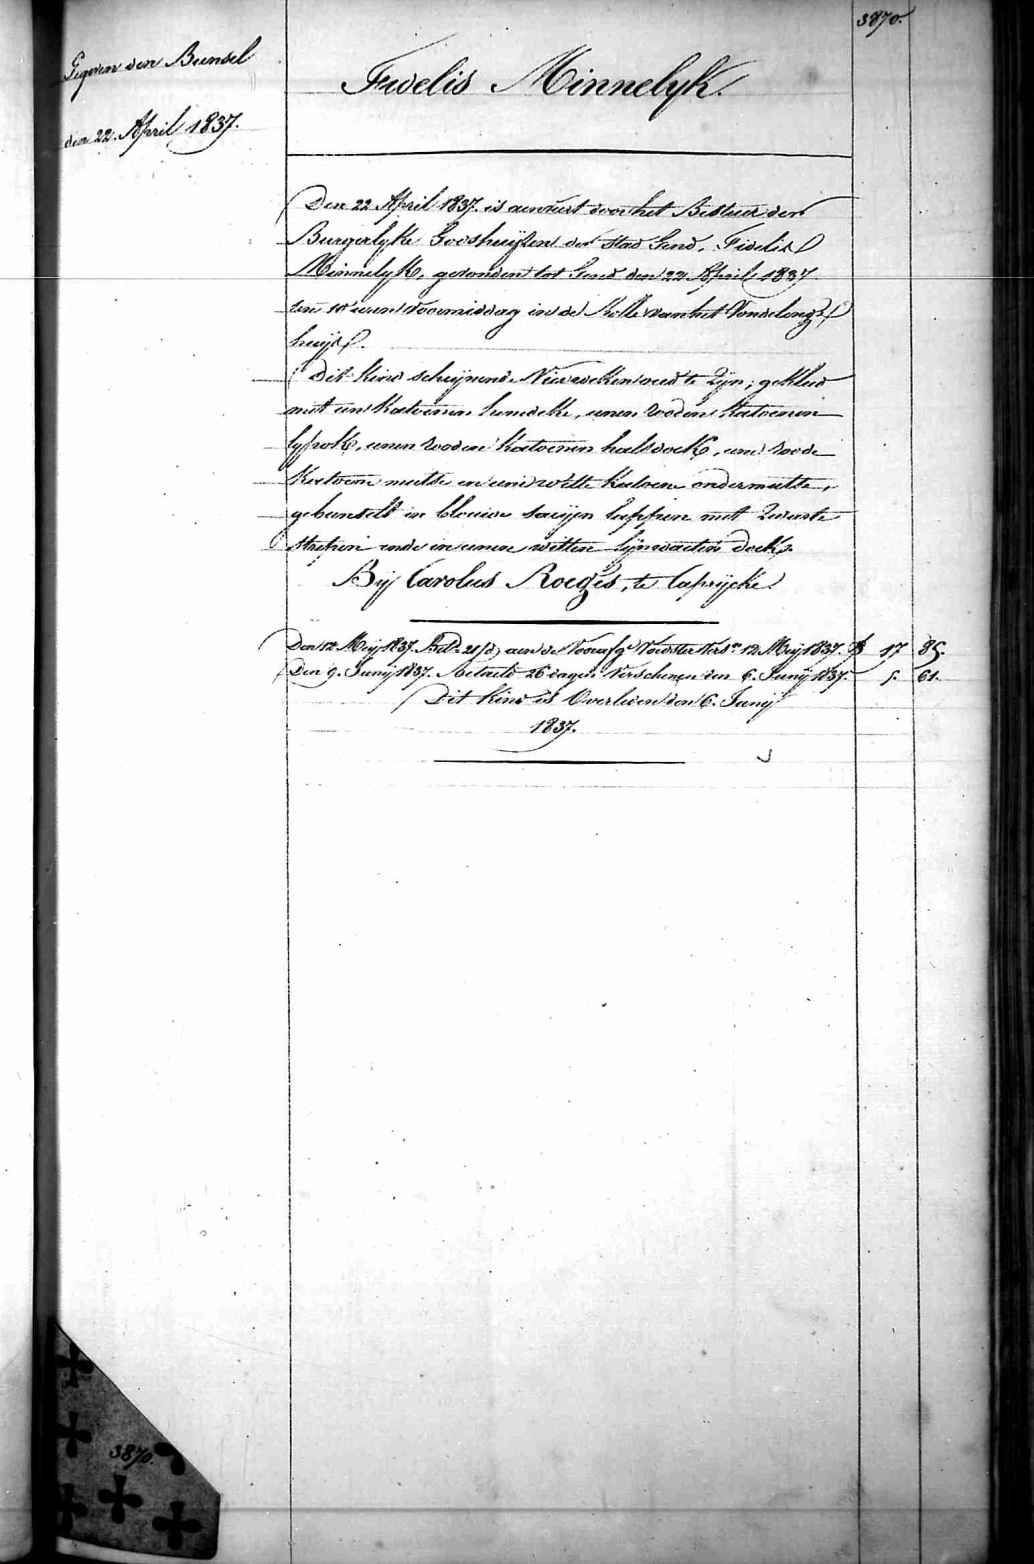 3870.
Gegeven den Bunsel
den 22. April 1837.
Fidelis Minnelyk.
Den 22 April 1837. is aenveert door het Bestuer der
Burgerlyke Godshuijsen der Stad Gend, Fidelis
Minnelyk, gevonden tot Gend den 22 April 1837
ten 10 uren voormiddag in de Rolle van het Vondelings
huijs.
Dit kind schijnend Nieuw oud te Zyn; gekleed
met een Katoenen hemdeke, eenen Rooden Katoenen
lyfrok, eenen Rooden Katoenen halsdoek, eene Roode
Katoene mutse en eene witte Katoene ondermutse,
gebunselt in blouwe saeijen lappen met Zwarte
Strepen ende in eenen witten lijnwaeten doek.
Bij Carolus Roegis, te Caprijcke.
Den 12 Meij 1837. Bet. 21/d aen de Voorsg Voedster Vers.n 12 Meij 1837. 17 85.
Den 9. Junij 1837. Betaelt 26 dagen Verschenen den 6. Junij 1837. 5. 61.
Dit kind is Overleden den 6. Junij
1837.
3870.